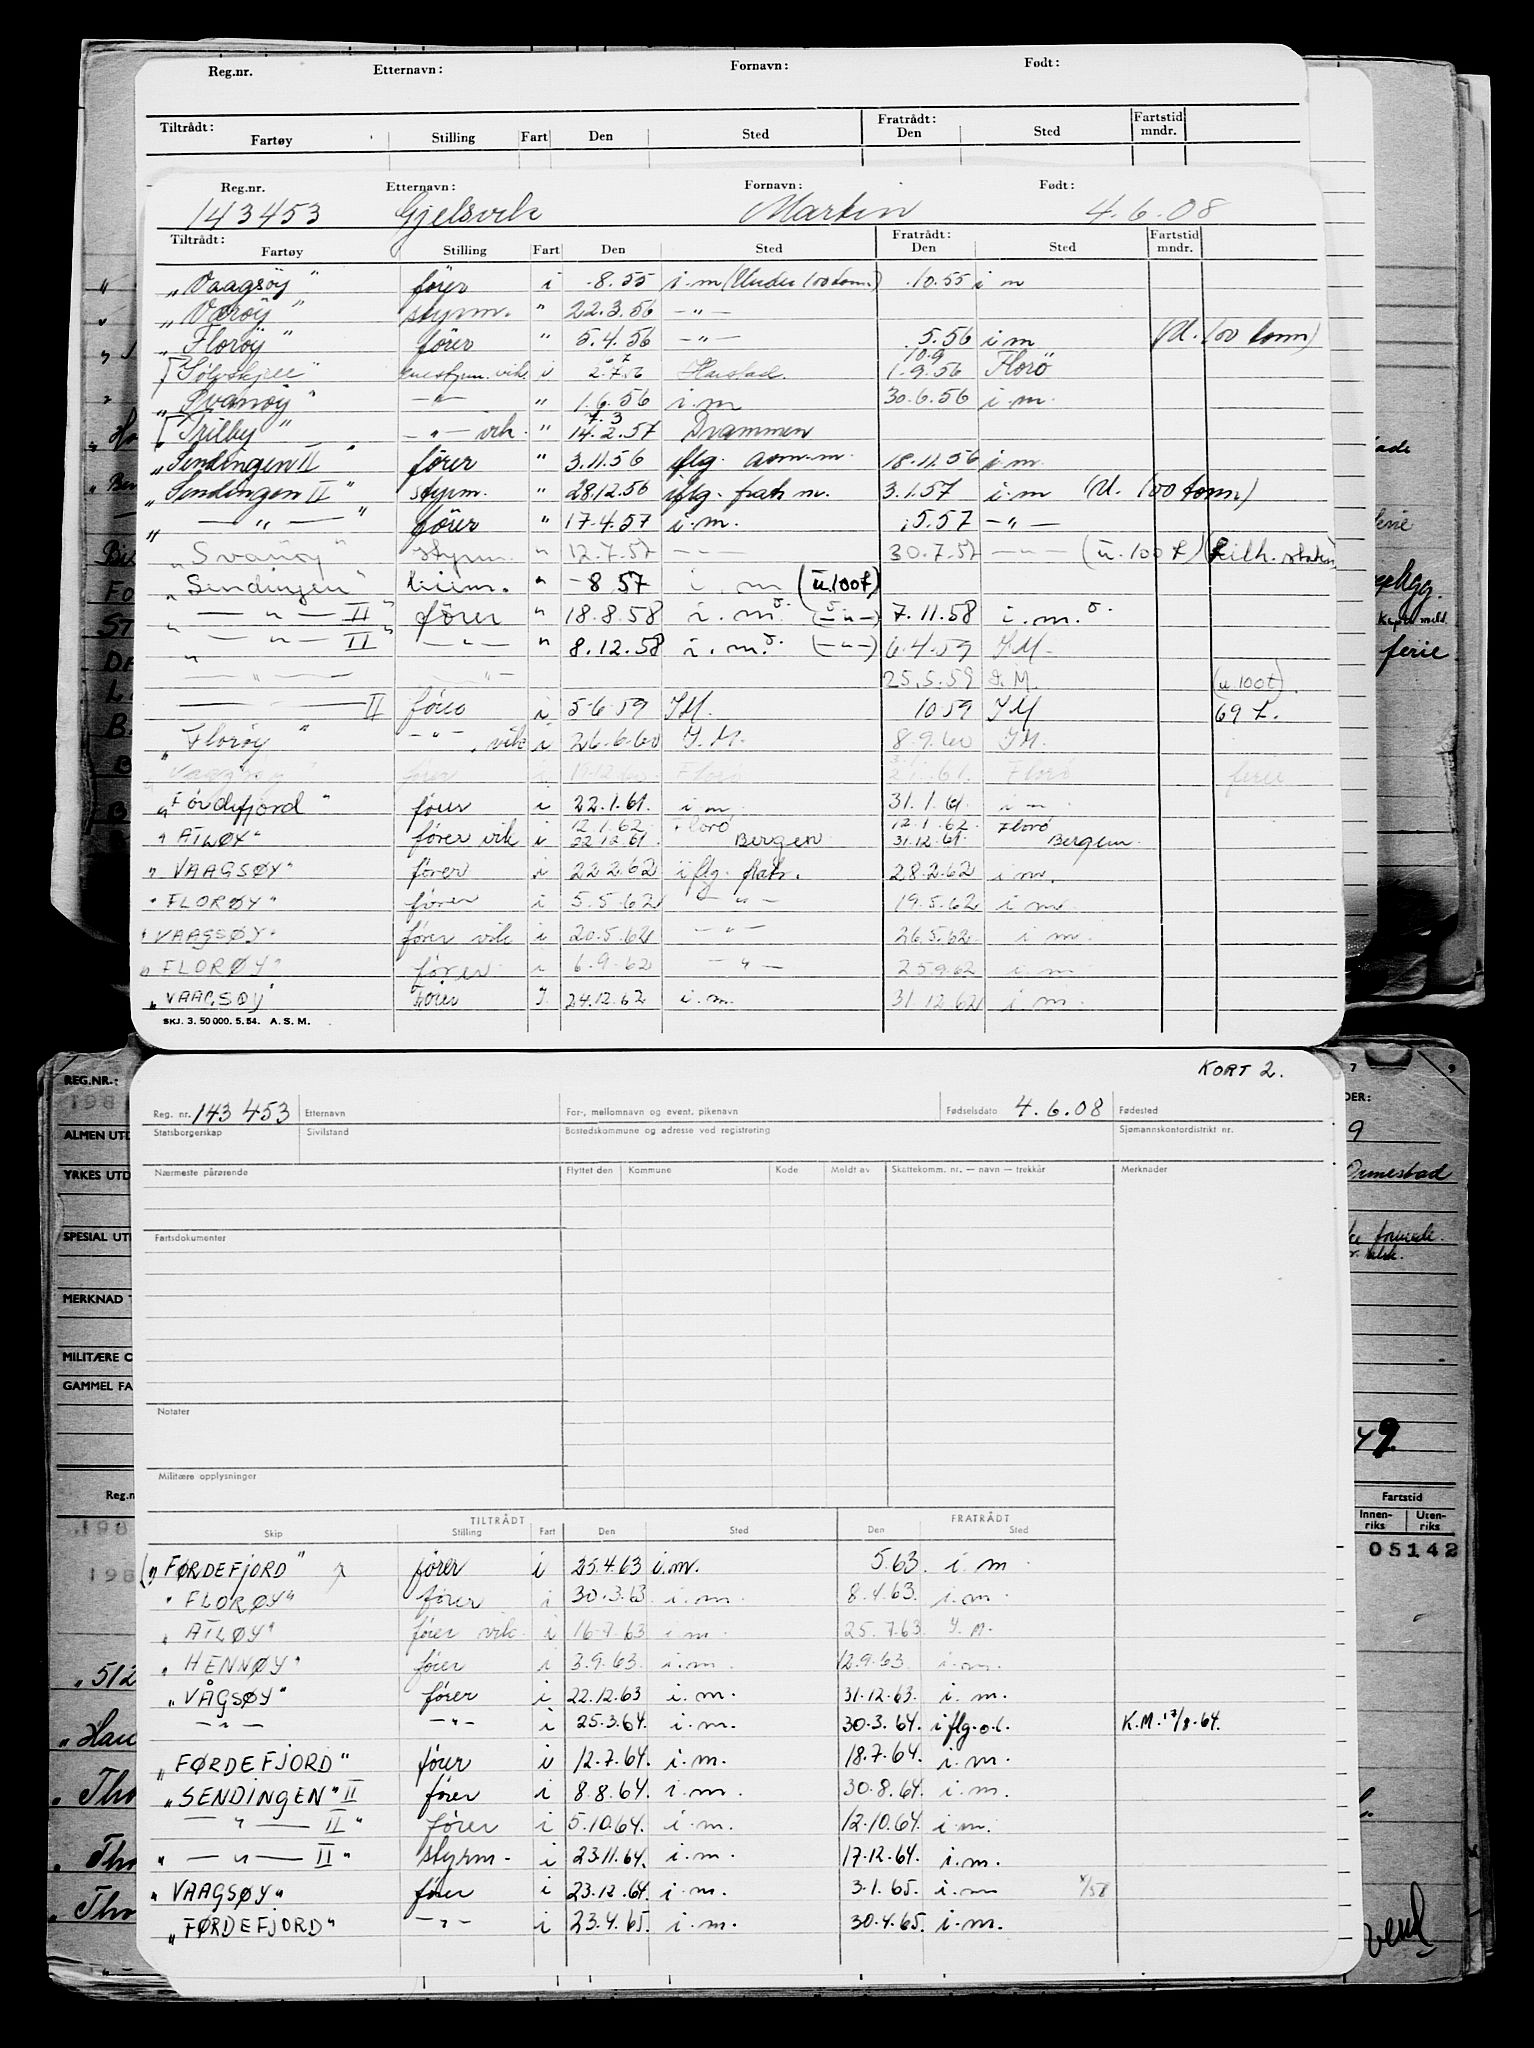 Reg.nr. Etternavn: Fornavn: Født:
Tiltrådt: Fratrådt: Fartstid
Fartøy Stilling Fart Den Sted Den Sted mndr.
Reg.nr. Etternavn: Fornavn: Født:
143453 Gjelsvik Martin 4.6.08
Tiltrådt: Fratrådt: Fartstid
Fartøy Stilling Fart Den Sted Den Sted mndr.
"Vaagsøy" fører i -8.55 i.m (Under 100 tonn.) .10.55 i m
"Værøy" styrm. " 22.3.56 -"-
"Florøy" fører " 5.4.56 -"- .5.56 i m (U. 100 tonn)
10.9
"Sølvskjell" vik. i 2.7.6 Harstad. 1.9.56 Florø
"Svanøy" -"- " 1.6.56 i.m 30.6.56 i.m.
7.3
"Trilby" -"- vik. " 14.2.57 Drammen
"Sendingen II" fører " 3.11.56 iflg. anm.m. 18.11.56 i m.
"Sendingen II" styrm. " 28.12.56 iflg. fratr m. 3.1.57 i.m (U. 100 tonn)
" -"- " fører " 17.4.57 i.m. .5.57 -"-
"Svanøy" styrm. " 12.7.57 -"- 30.7.57 -"- (u. 100 t)
"Sendingen" " -8 57 i m (u.100t)
" -"- II" fører " 18.8.58 i.m. (-"-) 7.11.58 i.m.
" -"- II" -"- " 8.12.58 i.m. (-"-) 6.4.59 I M.
-"- -"- 25.5.59 I.M. (u.100t).
-"- II fører i 5.6.59 I M. 10.59 I M 69 t.
"Florøy" -"-, vik i 26.6.60 I.M. 8.9.60 I M.
"Vaagsøy" fører i 19.12.60 Florø Florø ferie
"Førdefjord" fører i 22.1.61. i m 31.1.61 i m
12.1.62 Florø 12.1.62 Florø
"ATLØY" fører vik i 22.12.61 Bergen 31.12.61. Bergen
"VAAGSØY" fører i 22.2.62 iflg. fratr. 28.2.62 i m.
"FLORØY" fører i 5.5.62 -"- 19.5.62 i m
"VAAGSØY" fører vik i 20.5.62 -"- 26.5.62 i m.
"FLORØY" fører i 6.9.62 -"- 25.9.62 i m
"VAAGSØY" Fører I. 24.12.62 i.m. 31.12.62 i m.
SKJ. 3. 50 000. 5. 54. A. S. M.
KORT 2.
Reg. nr. 143 453 Etternavn For-, mellomnavn og event. pikenavn Fødselsdato 4.6.08 Fødested
Statsborgerskap Sivilstand Bostedskommune og adresse ved registrering Sjømannskontordistrikt nr.
Nærmeste pårørende Flyttet den Kommune Kode Meldt av Skattekomm. nr. — navn — trekkår Merknader
Fartsdokumenter
Notater
Militære opplysninger
TILTRÅDT FRATRÅDT
Skip Stilling Fart Den Sted Den Sted
("FØRDEFJORD" fører i 25.4.63 i.m. 5.63. i.m
"FLORØY" fører i 30.3.63 i.m. 8.4.63. i.m.
"ATLØY" fører vik. i 16.7.63 i m. 25.7.63. I.M.
"HENNØY" fører i 3.9.63. i.m. 12.9.63. i.m.
"VÅGSØY" fører i 22.12.63 i.m. 31.12.63. i.m.
-"- -"- i 25.3.64. i.m. 30.3.64. i flg.o.l. K.M. 17/8.64.
"FØRDEFJORD" fører i 12.7.64. i.m. 18.7.64. i.m.
"SENDINGEN" II fører i 8.8.64. i.m. 30.8.64. i.m.
-"- II " fører i 5.10.64. i.m. 12.10.64. i.m.
" -"- II " styrm. i 23.11.64. i.m. 17.12.64. i.m.
"VAAGSØY" fører i 23.12.64. i.m. 3.1.65. i.m
"FØRDEFJORD" -"- i 23.4.65. i.m. 30.4.65. i.m.
REG.NR.:
ALMEN UTD
YRKES UTD
SPESIAL UT
MERKNAD
MILITÆRE O
GAMMEL FA
Reg.n
Ormestad
Fartstid
Innen-riks Uten-riks
05142
"512
ferie